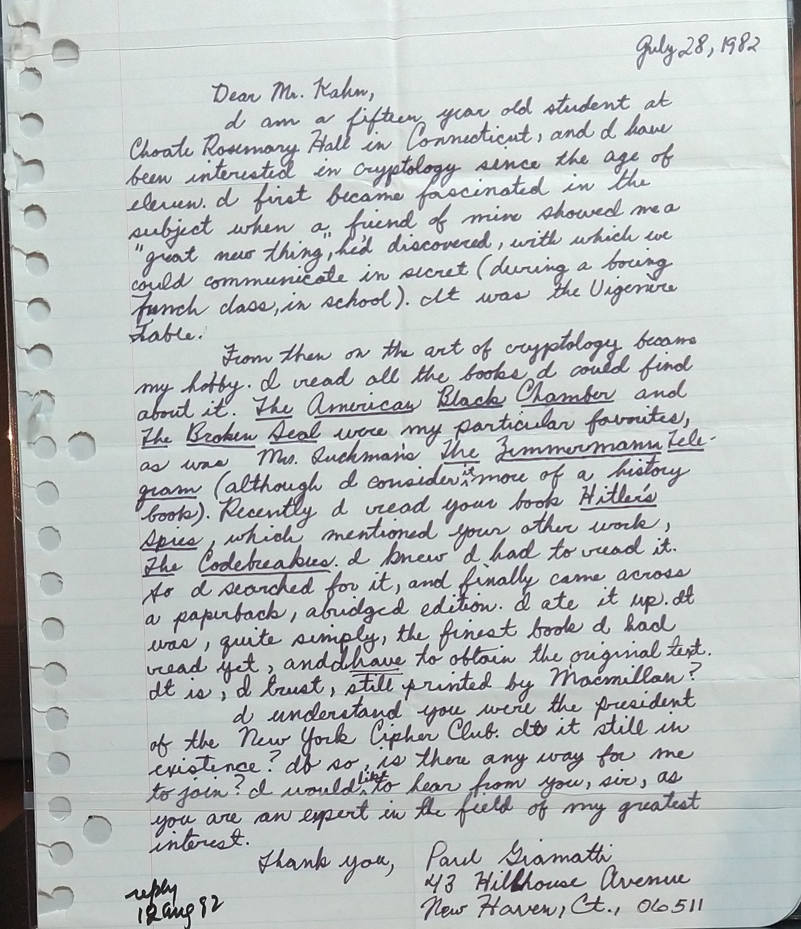 July 28, 1982
Dear Mr. Kahn,
I am a fifteen year old student at
Choate Rosemary Hall in Connecticut, and I have
been interested in cryptology since the age of
eleven. I first became fascinated in the
subject when a friend of mine showed me a
"great new thing", he'd discovered, with which we
could communicate in secret (during a boring
french class, in school). It was the Vigenère
Table.
From then on the art of cryptology became
my hobby. I read all the books I could find
about it. The American Black Chamber and
The Broken Seal were my particular favorites,
as was Mrs. Tuchman's The Zimmermann Tele-
gram (although I consider it more of a history
book). Recently I read your book Hitler's
Spies, which mentioned your other work,
The Codebreakers. I knew I had to read it.
So I searched for it, and finally came across
a paperback, abridged edition. I ate it up. It
was, quite simply, the finest book I had
read yet, and I have to obtain the original text.
It is, I trust, still printed by Macmillan?
I understand you were the president
of the New York Cipher Club. Is it still in
existence? If so, is there any way for me
to join? I would like to hear from you, sir, as
you are an expert in the field of my greatest
interest.
Thank you, Paul Giamatti
43 Hillhouse Avenue
New Haven, Ct., 06511
reply
12 Aug 82